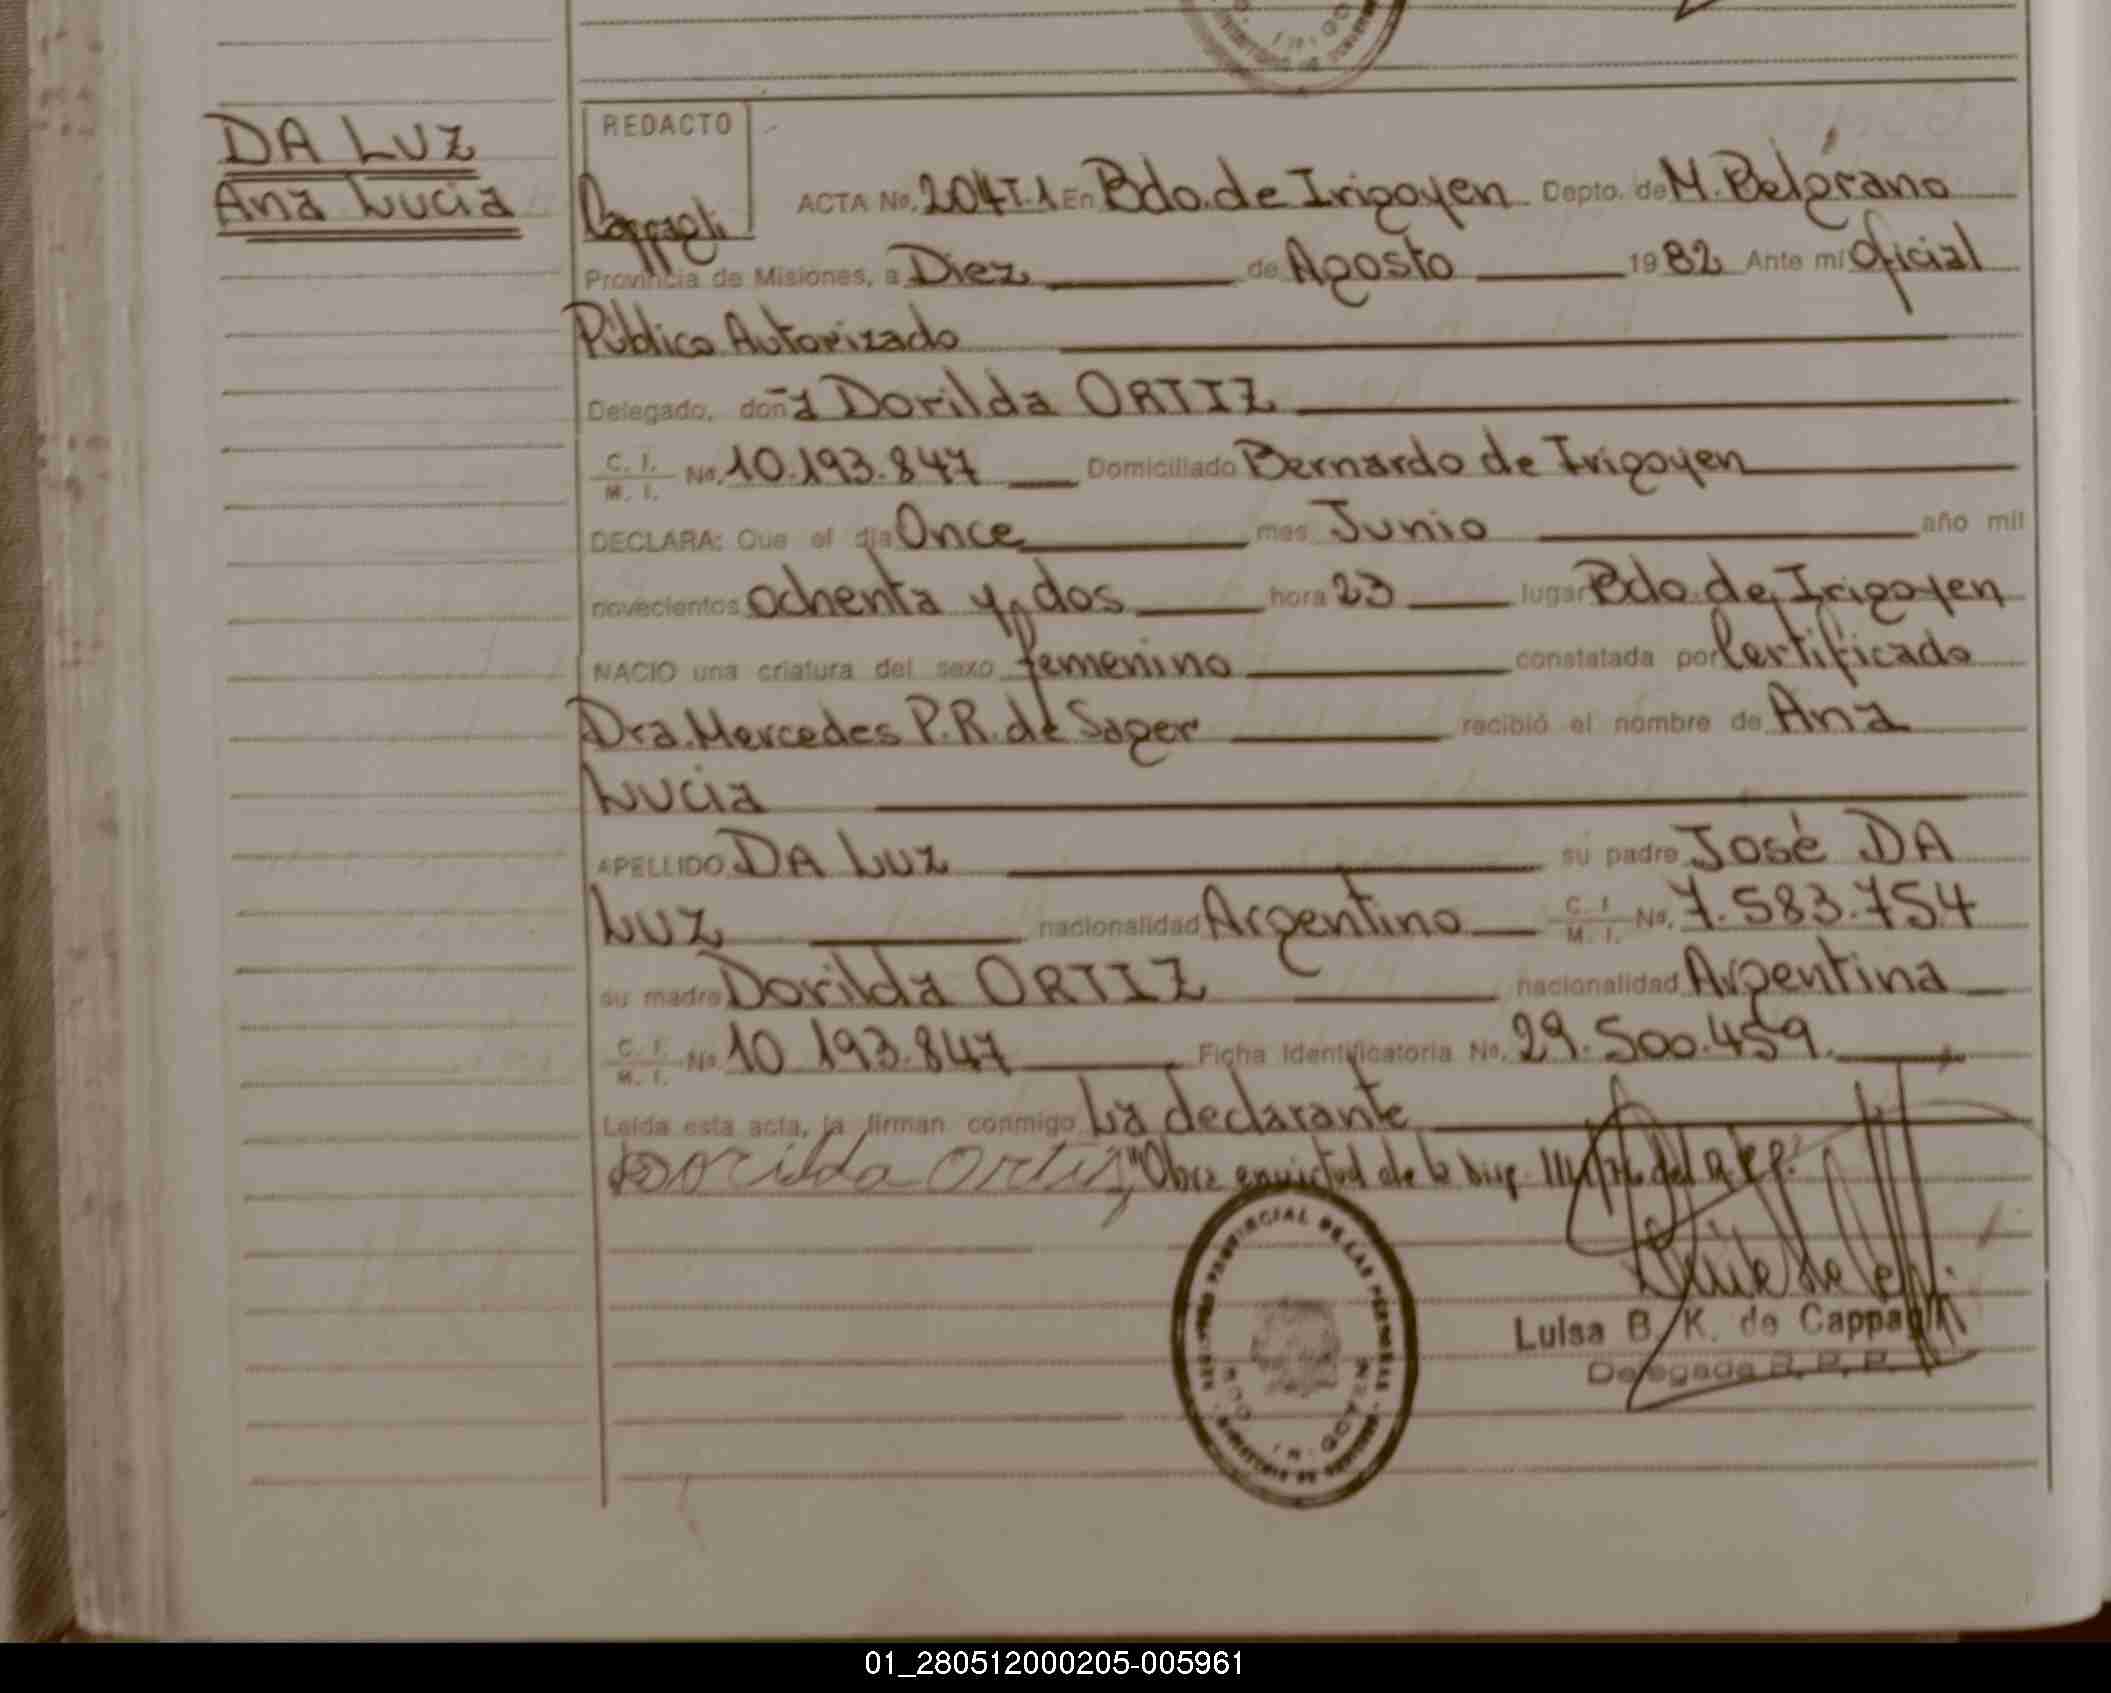 DA LUZ
Ana Lucia
REDACTO
Cappagli
ACTA No. 204 T.1 En Bdo. de Irigoyen Depto. de M. Belgrano
Provincia de Misiones, a Diez de Agosto 1982 Ante mi Oficial
Público Autorizado
Delegado, doña Dorilda ORTIZ
C. I. M. I. No. 10.193.847 Domiciliado Bernardo de Irigoyen
DECLARA: Que el dia Once mes Junio año mil
novecientos ochenta y dos hora 23 lugar Bdo. de Irigoyen
NACIO una criatura del sexo femenino constatada por Certificado
Dra. Mercedes P.R. de Sager recibió el nombre de Ana
Lucia
APELLIDO DA LUZ su padre José DA
LUZ nacionalidad Argentino C. I. M. I. No. 7.583.754
su madre Dorilda ORTIZ nacionalidad Argentina
C. I. M. I. No. 10.193.847 Ficha Identificatoria No. 29.500.459.
Leida esta acta, la firman conmigo La declarante
Dorilda Ortiz "Obra en virtud de la Disp.
REGISTRO PROVINCIAL DE LAS PERSONAS
Luisa B. K. de Cappagli
Delegada R. P. P.
01_280512000205-005961